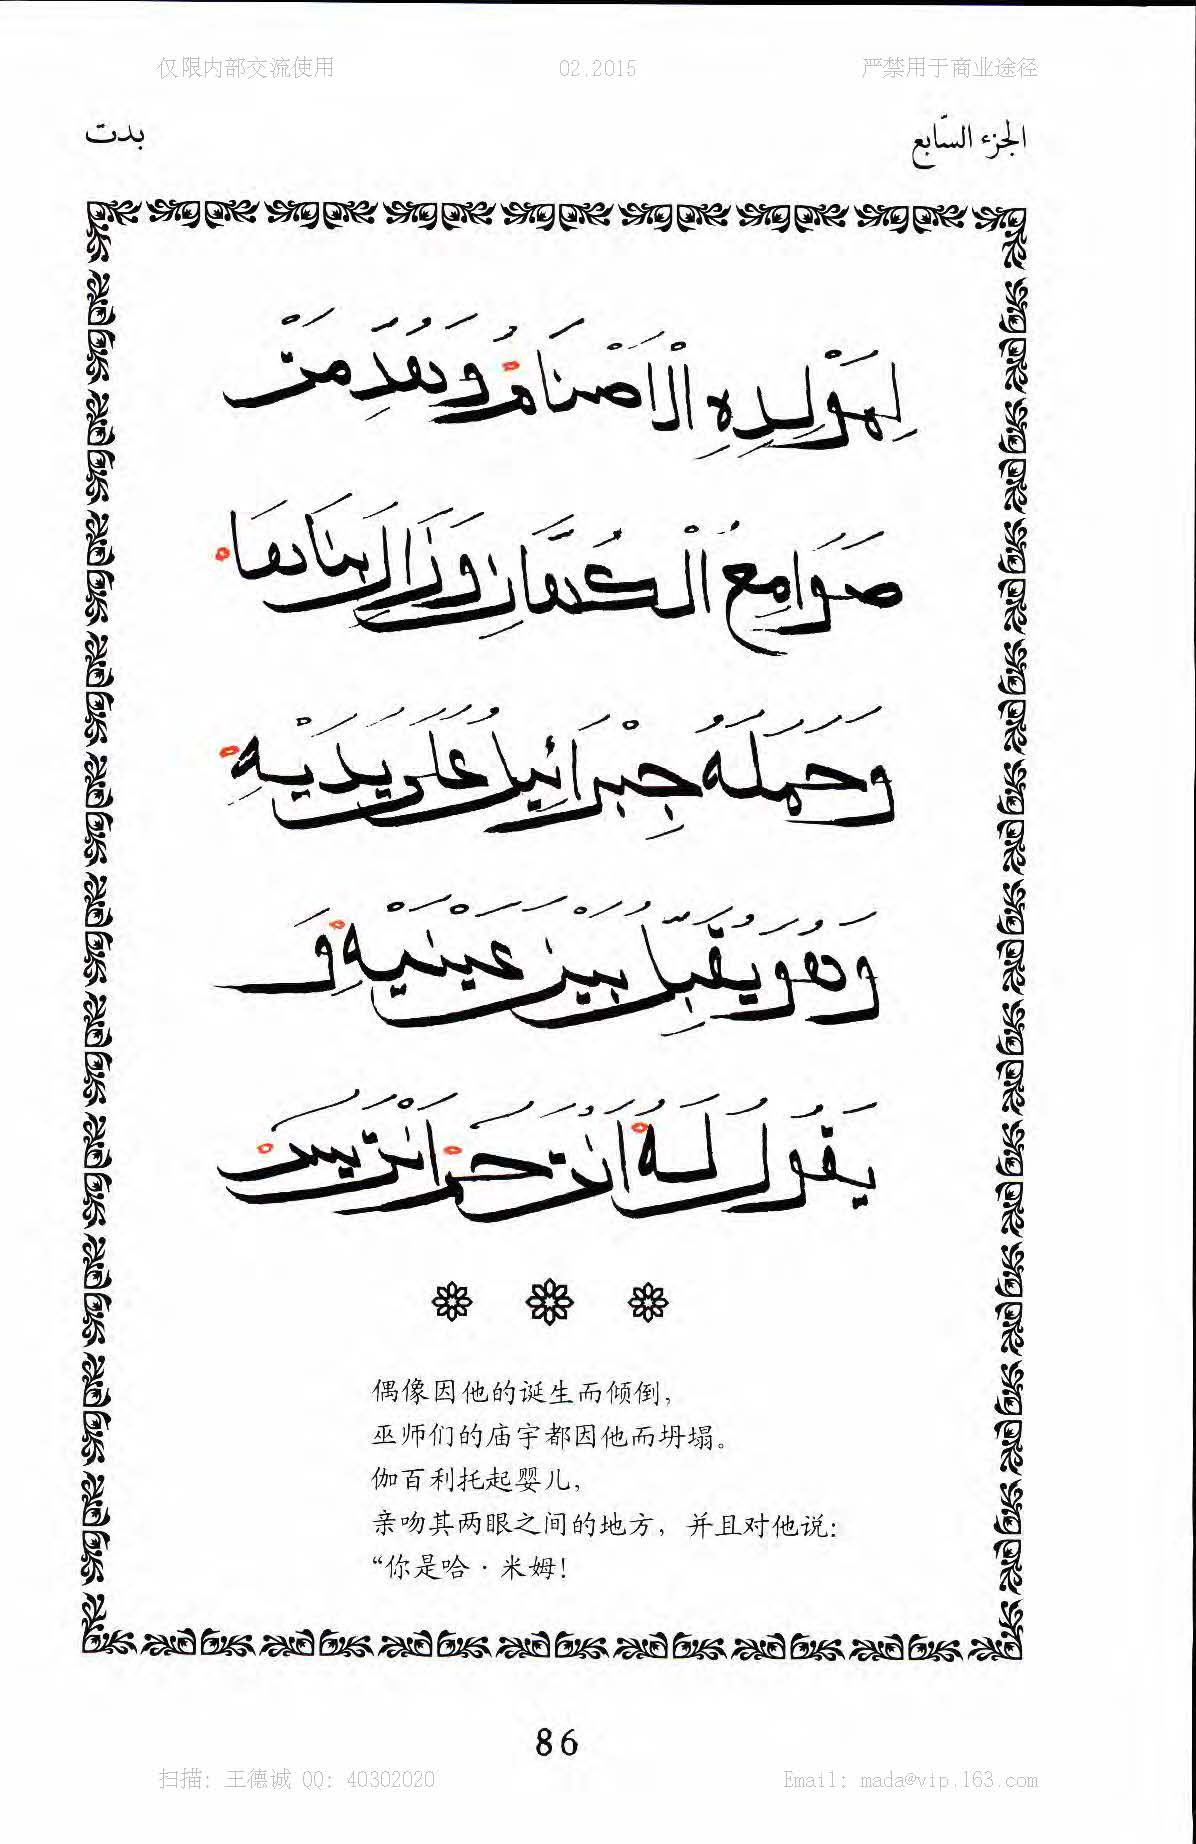 仅限内部交流使用 02.2015 严禁用于商业途径
الجزء السّابع بدت
لِمَوْلِدِهِ الْاَصْنَامُ وَ
صَوَامِعُ الْكُفَّارِ وَ
وَحَمَلَهُ جِبْرَائِيلُ عَلَى يَدَيْهِ
وَهُوَ يُقَبِّلُ بَيْنَ عَيْنَيْهِ وَ
يَقُولُ لَهُ اَنْتَ حٰمۤ اَنْتَ يٰسۤ
偶像因他的诞生而倾倒，
巫师们的庙宇都因他而坍塌。
伽百利托起婴儿，
亲吻其两眼之间的地方，并且对他说：
“你是哈·米姆！
86
扫描：王德诚 QQ：40302020 Email：mada@vip.163.com